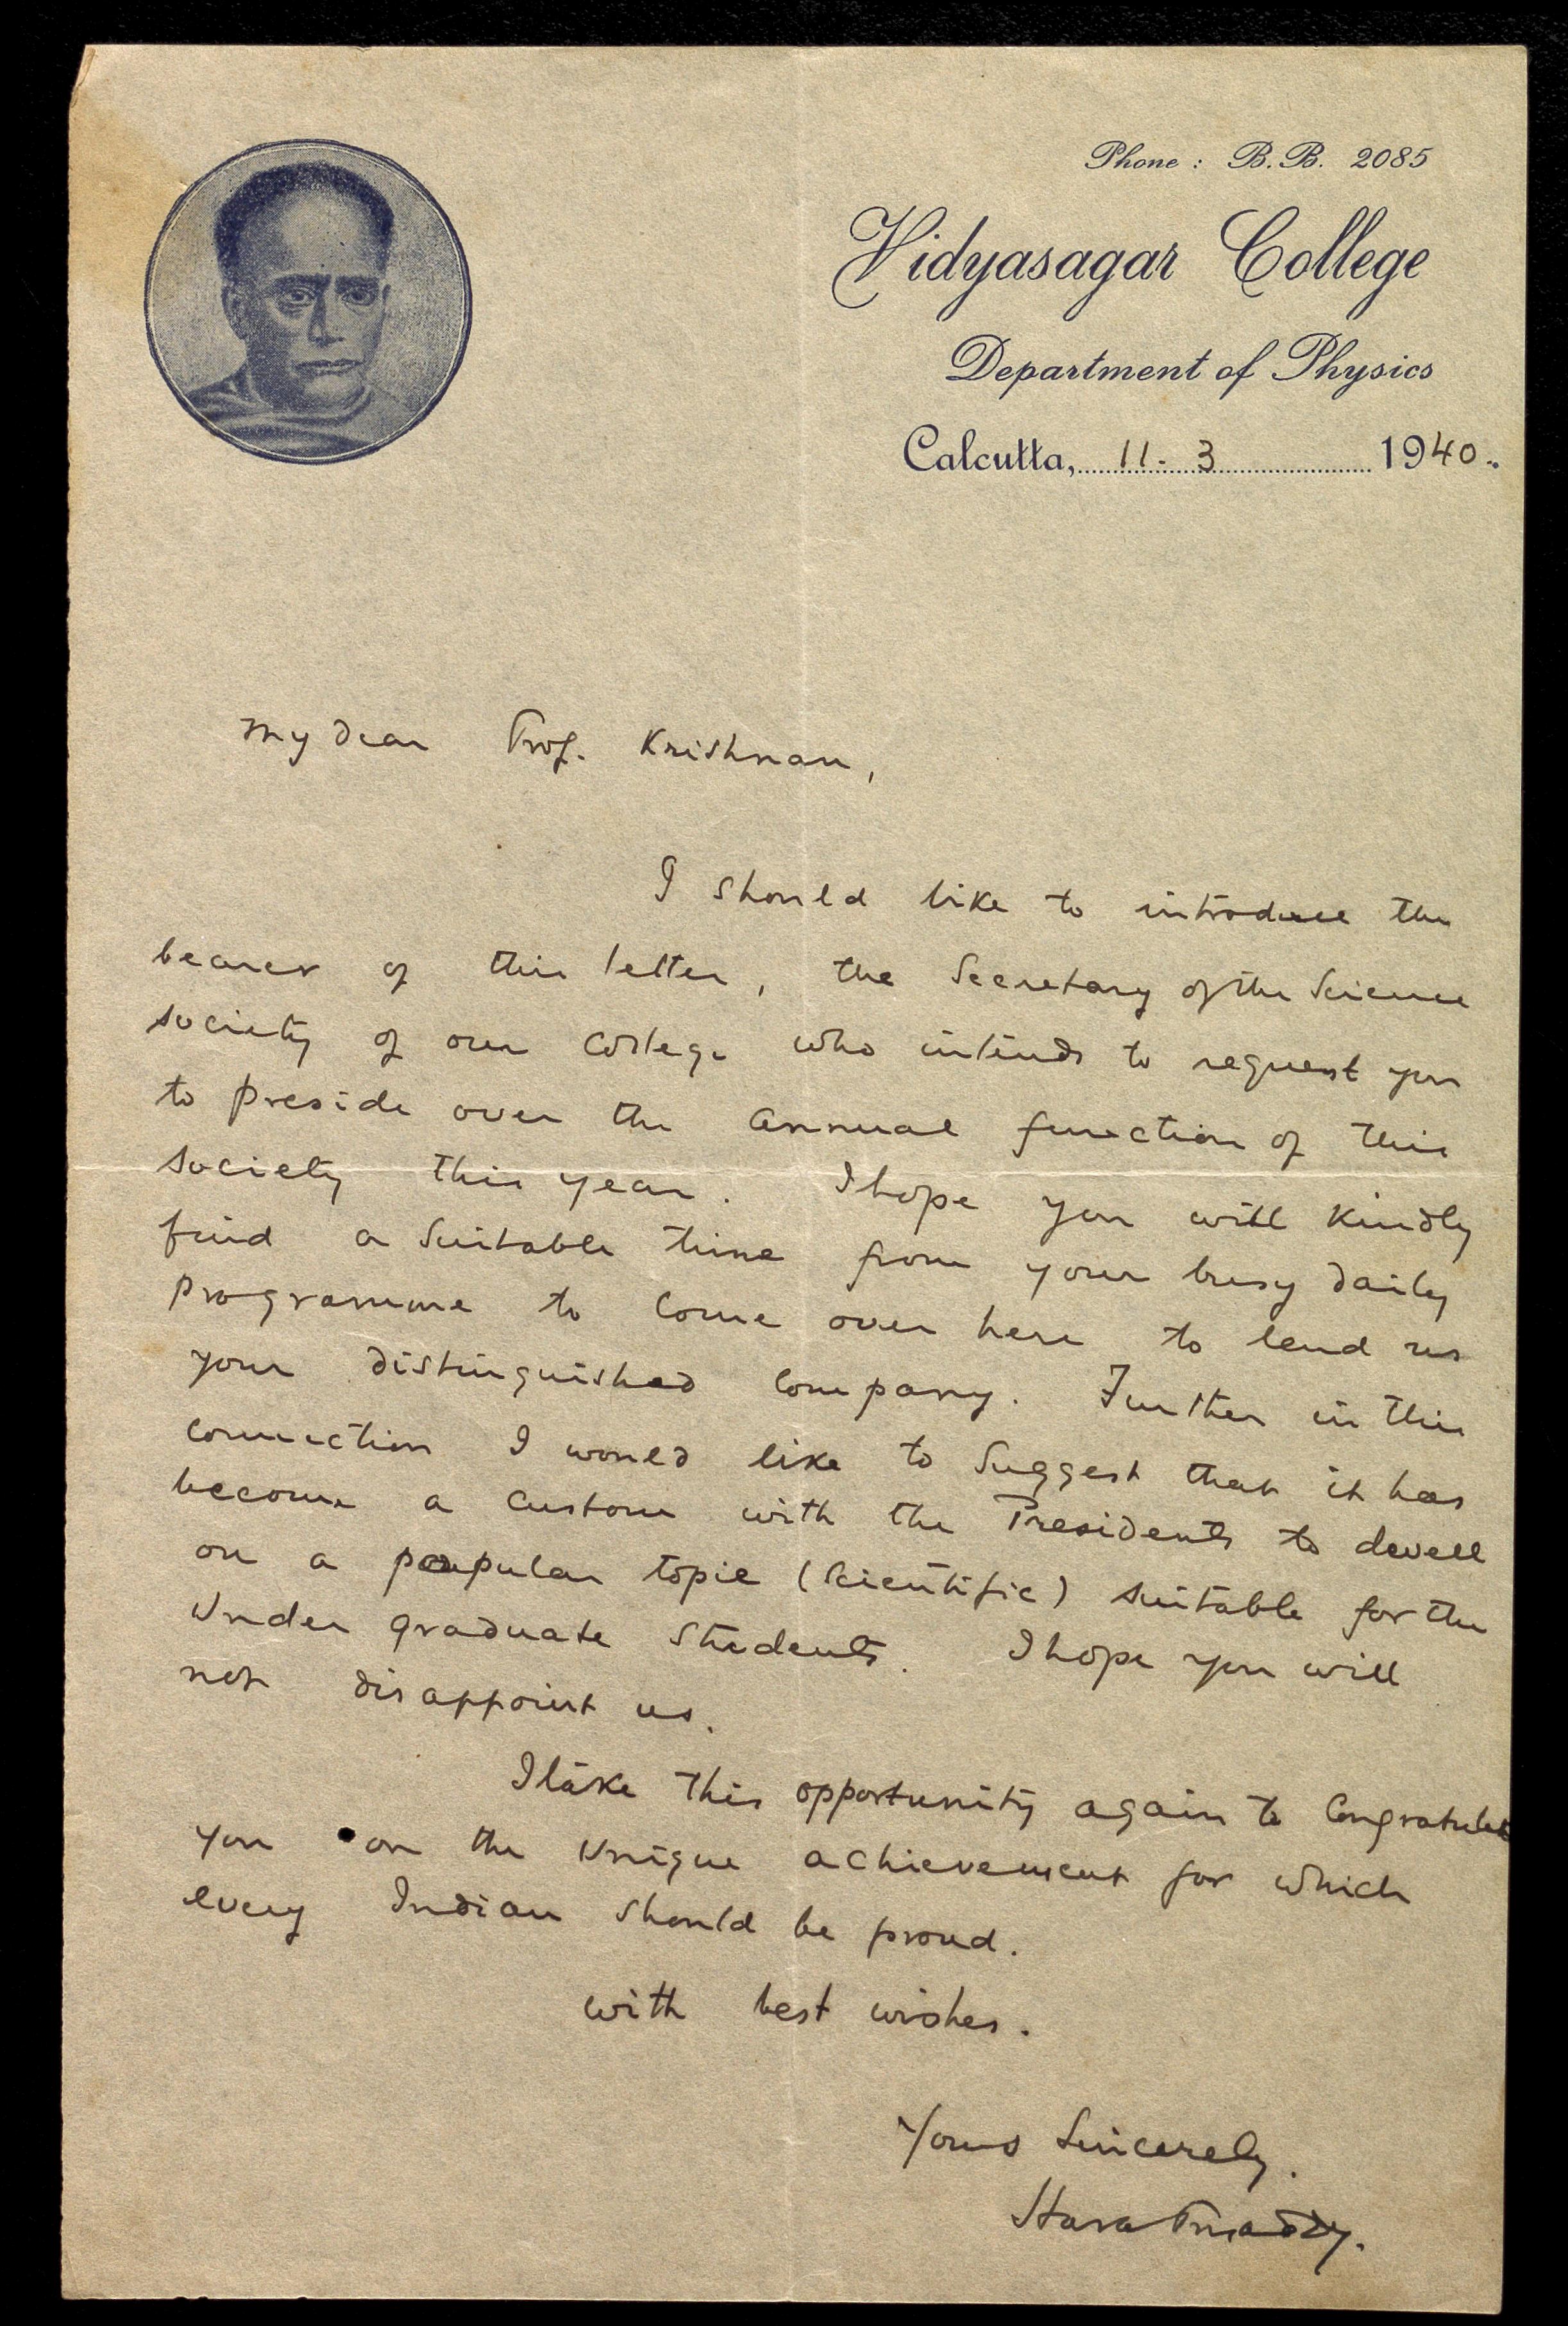 Phone : B.B. 2085
Vidyasagar College
Department of Physics
Calcutta, 11-3 1940.
My dear Prof. Krishnan,
I should like to introduce the
bearer of this letter, the Secretary of the Science
society of our college who intends to request you
to preside over the annual function of this
society this year. I hope you will kindly
find a suitable time from your busy daily
programme to come over here to lend us
your distinguished company. Further in this
connection I would like to suggest that it has
become a custom with the Presidents to dwell
on a popular topic (scientific) suitable for the
under graduate students. I hope you will
not disappoint us.
I take this opportunity again to congratulate
you on the unique achievement for which
every Indian should be proud.
with best wishes.
Yours Sincerely.